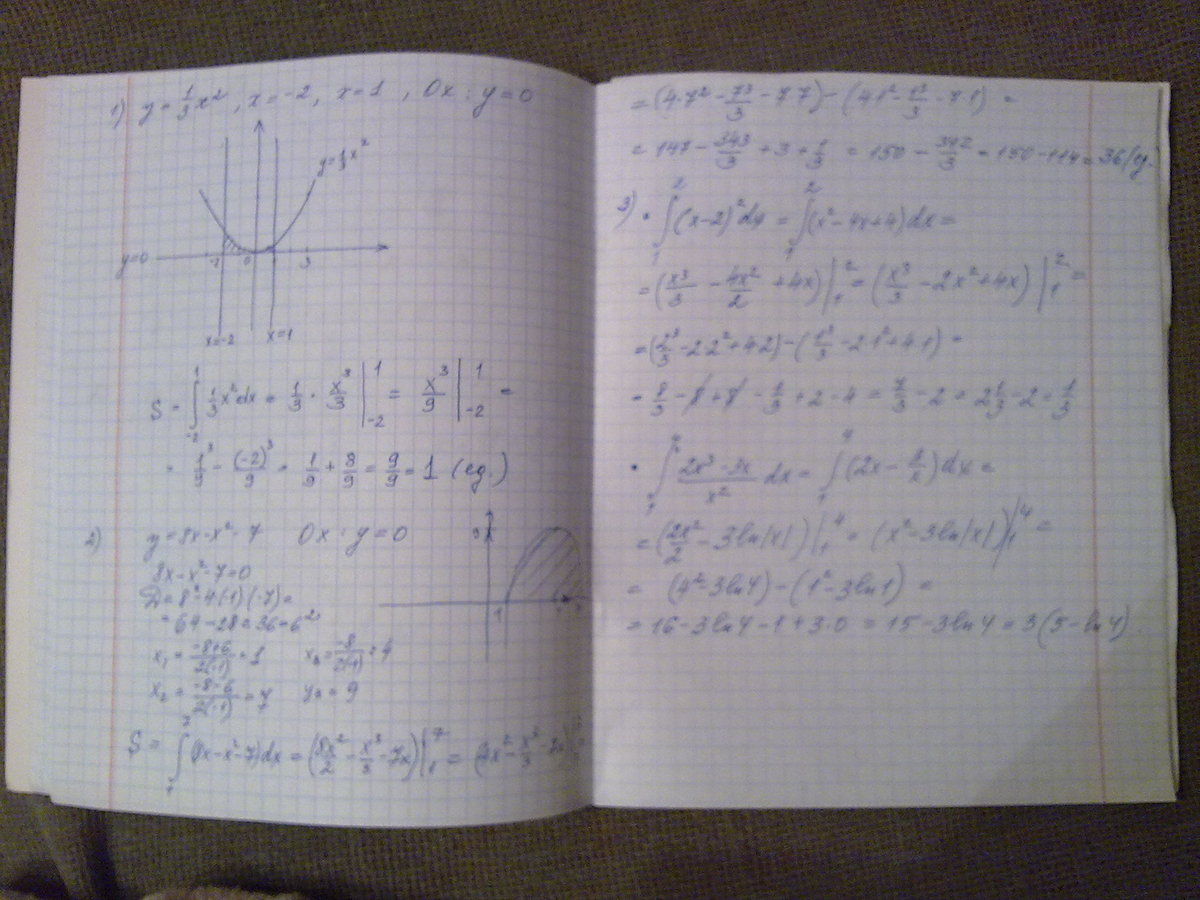 1) y = 1/3 x², x = -2, x = 1, Ox : y = 0
y = 1/3 x²
y=0
-2 0 3
x=-2 x=1
S = ∫_{-2}^{1} 1/3 x² dx = 1/3 · x³/3 |_{-2}^{1} = x³/9 |_{-2}^{1} =
= 1³/9 - (-2)³/9 = 1/9 + 8/9 = 9/9 = 1 (eg.)
2) y = 8x - x² - 7 Ox : y = 0
9
1
8x - x² - 7 = 0
D = 8² - 4(-1)(-7) =
= 64 - 28 = 36 = 6²
x₁ = (-8+6)/(2(-1)) = 1 x₀ = -8/(2(-1)) = 4
x₂ = (-8-6)/(2(-1)) = 7 y₀ = 9
S = ∫_{1}^{7} (8x - x² - 7) dx = (8x²/2 - x³/3 - 7x) |_{1}^{7} = (4x² - x³/3 - 7x) |_{1}^{7} =
= (4·7² - 7³/3 - 7·7) - (4·1² - 1³/3 - 7·1) =
= 147 - 343/3 + 3 + 1/3 = 150 - 342/3 = 150 - 114 = 36 (eg.
3) • ∫_{1}^{2} (x-2)² dx = ∫_{1}^{2} (x² - 4x + 4) dx =
= (x³/3 - 4x²/2 + 4x) |_{1}^{2} = (x³/3 - 2x² + 4x) |_{1}^{2} =
= (2³/3 - 2·2² + 4·2) - (1³/3 - 2·1² + 4·1) =
= 8/3 - 8 + 8 - 1/3 + 2 - 4 = 7/3 - 2 = 2 1/3 - 2 = 1/3
• ∫_{1}^{4} (2x³ - 3x)/x² dx = ∫_{1}^{4} (2x - 3/x) dx =
= (2x²/2 - 3ln|x|) |_{1}^{4} = (x² - 3ln|x|) |_{1}^{4} =
= (4² - 3ln4) - (1² - 3ln1) =
= 16 - 3ln4 - 1 + 3·0 = 15 - 3ln4 = 3(5 - ln4)